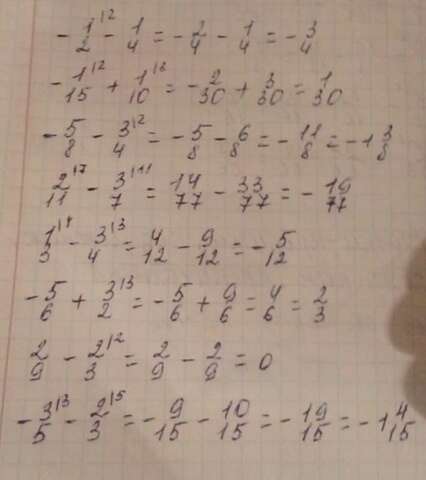 -1/2^|2 - 1/4 = -2/4 - 1/4 = -3/4
-1/15^|2 + 1/10^|3 = -2/30 + 3/30 = 1/30
-5/8 - 3/4^|2 = -5/8 - 6/8 = -11/8 = -1 3/8
2/11^|7 - 3/7^|11 = 14/77 - 33/77 = -19/77
1/3^|4 - 3/4^|3 = 4/12 - 9/12 = -5/12
-5/6 + 3/2^|3 = -5/6 + 9/6 = 4/6 = 2/3
2/9 - 2/3^|2 = 2/9 - 2/9 = 0
-3/5^|3 - 2/3^|5 = -9/15 - 10/15 = -19/15 = -1 4/15